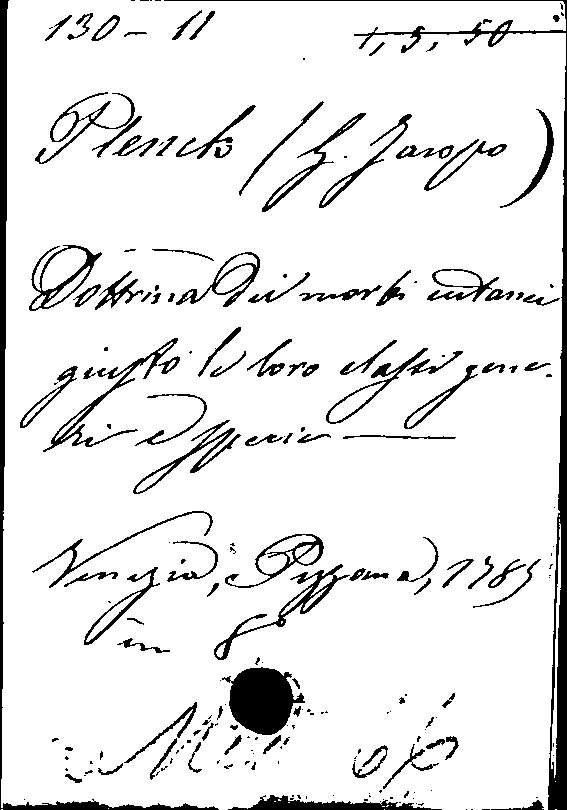 130 - 11 1, 5, 50
Plenck (G. Jacopo)
Dottrina dei morbi cutanei
giusto le loro classi gene-
ri e specie —
Venezia, Pezzana, 1785
in 8°